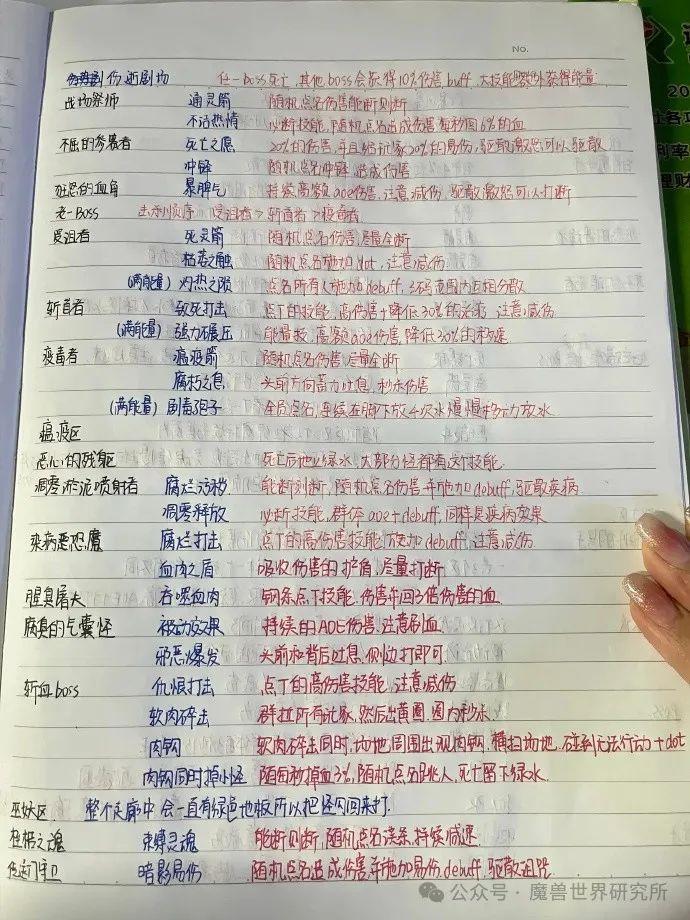 No.
伤逝剧场 任一Boss死亡,其他boss会获得10%伤害buff,大技能额外获得能量
战场祭师 通灵箭 随机点名伤害能断则断
不洁热情 必断技能,随机点名造成伤害每秒回6%的血
不屈的参赛者 死亡之愿 20%的伤害,并且给玩家20%的易伤,驱散激怒可以驱散
冲锋 随机点名冲锋造成伤害
狂怒的血角 暴脾气 持续高额aoe伤害,注意减伤,驱散激怒可以打断
老一Boss 击杀顺序 受诅者>斩首者>疫毒者
受诅者 死灵箭 随机点名伤害,尽量全断
枯萎之触 随机点名施加dot,注意减伤
(满能量) 灼热之陨 点名所有人施加debuff,5码范围内互相分散
斩首者 致死打击 点T的技能,高伤害+降低30%的治疗,注意减伤
(满能量) 强力碾压 能量技,高额aoe伤害,降低30%的移速
疫毒者 瘟疫箭 随机点名伤害,尽量全断
腐朽之息 头前方向蓄力吐息,秒杀伤害
(满能量) 剧毒孢子 全员点名,连续在脚下放4次水慢慢移动放水
瘟疫区
恶心的残躯 死亡后地上绿水,大部分怪都有这技能
凋零淤泥喷射者 腐烂污秽 能断则断,随机点名伤害并施加debuff,驱散疾病
凋零释放 必断技能,群体aoe+debuff,同样是疾病效果
染病恶恐魔 腐烂打击 点T的高伤害技能,施加debuff,注意减伤
血肉之盾 吸收伤害的护盾,尽量打断
腥臭屠夫 吞噬血肉 钢条点T技能,伤害并回3倍伤害的血
腐臭的气囊怪 被动效果 持续的AOE伤害,注意刷血
邪恶爆发 头前和背后吐息,侧边打即可
斩血boss 仇恨打击 点T的高伤害技能,注意减伤
软肉碎击 群拉所有玩家,然后出黄圈,圈内秒杀
肉钩 软肉碎击同时,场地周围出现肉钩,横扫场地,碰到无法行动+dot
肉钩同时掉小怪 随每秒掉血3%,随机点名跳人,死亡留下绿水
巫妖区 整个走廊中会一直有绿色地板所以把怪勾回来打
桎梏之魂 束缚灵魂 能断则断,随机点名读条,持续减速
传送门守卫 暗影易伤 随机点名造成伤害并施加易伤debuff,驱散诅咒
公众号·魔兽世界研究所